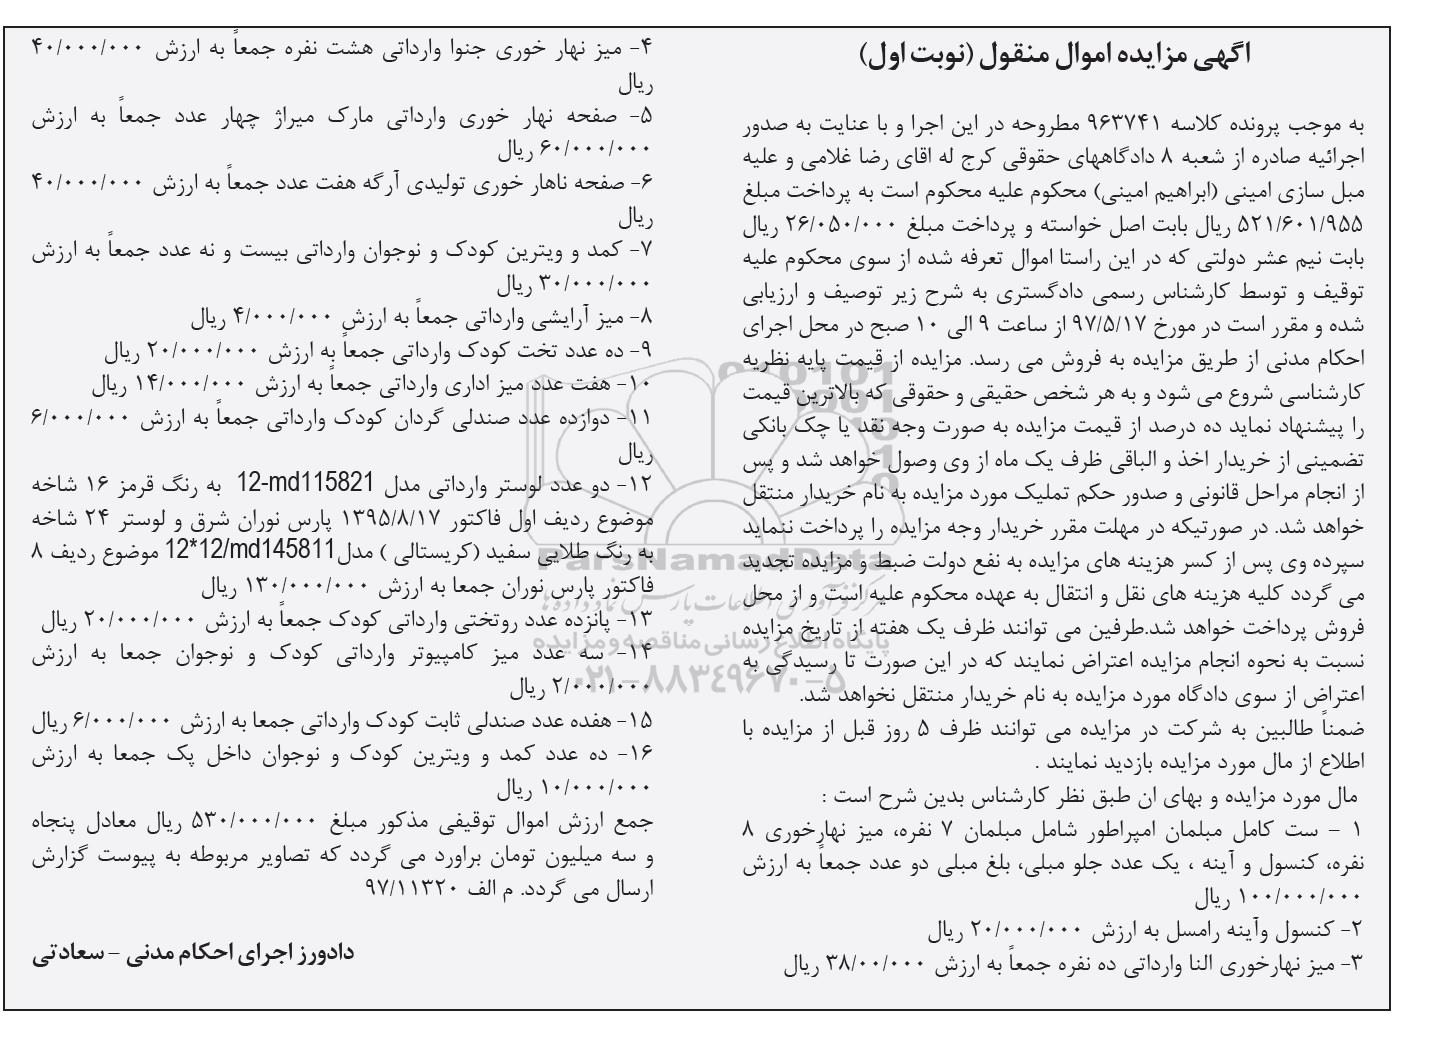 اگهی مزایده اموال منقول (نوبت اول)
به موجب پرونده کلاسه ۹۶۳۷۴۱ مطروحه در این اجرا و با عنایت به صدور
اجرائیه صادره از شعبه ۸ دادگاههای حقوقی کرج له اقای رضا غلامی و علیه
مبل سازی امینی (ابراهیم امینی) محکوم علیه محکوم است به پرداخت مبلغ
۵۲۱/۶۰۱/۹۵۵ ریال بابت اصل خواسته و پرداخت مبلغ ۲۶/۰۵۰/۰۰۰ ریال
بابت نیم عشر دولتی که در این راستا اموال تعرفه شده از سوی محکوم علیه
توقیف و توسط کارشناس رسمی دادگستری به شرح زیر توصیف و ارزیابی
شده و مقرر است در مورخ ۹۷/۵/۱۷ از ساعت ۹ الی ۱۰ صبح در محل اجرای
احکام مدنی از طریق مزایده به فروش می رسد. مزایده از قیمت پایه نظریه
کارشناسی شروع می شود و به هر شخص حقیقی و حقوقی که بالاترین قیمت
را پیشنهاد نماید ده درصد از قیمت مزایده به صورت وجه نقد یا چک بانکی
تضمینی از خریدار اخذ و الباقی ظرف یک ماه از وی وصول خواهد شد و پس
از انجام مراحل قانونی و صدور حکم تملیک مورد مزایده به نام خریدار منتقل
خواهد شد. در صورتیکه در مهلت مقرر خریدار وجه مزایده را پرداخت ننماید
سپرده وی پس از کسر هزینه های مزایده به نفع دولت ضبط و مزایده تجدید
می گردد کلیه هزینه های نقل و انتقال به عهده محکوم علیه است و از محل
فروش پرداخت خواهد شد.طرفین می توانند ظرف یک هفته از تاریخ مزایده
نسبت به نحوه انجام مزایده اعتراض نمایند که در این صورت تا رسیدگی به
اعتراض از سوی دادگاه مورد مزایده به نام خریدار منتقل نخواهد شد.
ضمناً طالبین به شرکت در مزایده می توانند ظرف ۵ روز قبل از مزایده با
اطلاع از مال مورد مزایده بازدید نمایند .
مال مورد مزایده و بهای ان طبق نظر کارشناس بدین شرح است :
۱ - ست کامل مبلمان امپراطور شامل مبلمان ۷ نفره، میز نهارخوری ۸
نفره، کنسول و آینه ، یک عدد جلو مبلی، بلغ مبلی دو عدد جمعاً به ارزش
۱۰۰/۰۰۰/۰۰۰ ریال
۲- کنسول وآینه رامسل به ارزش ۲۰/۰۰۰/۰۰۰ ریال
۳- میز نهارخوری النا وارداتی ده نفره جمعاً به ارزش ۳۸/۰۰/۰۰۰ ریال
۴- میز نهار خوری جنوا وارداتی هشت نفره جمعاً به ارزش ۴۰/۰۰۰/۰۰۰
ریال
۵- صفحه نهار خوری وارداتی مارک میراژ چهار عدد جمعاً به ارزش
۶۰/۰۰۰/۰۰۰ ریال
۶- صفحه ناهار خوری تولیدی آرگه هفت عدد جمعاً به ارزش ۴۰/۰۰۰/۰۰۰
ریال
۷- کمد و ویترین کودک و نوجوان وارداتی بیست و نه عدد جمعاً به ارزش
۳۰/۰۰۰/۰۰۰ ریال
۸- میز آرایشی وارداتی جمعاً به ارزش ۴/۰۰۰/۰۰۰ ریال
۹- ده عدد تخت کودک وارداتی جمعاً به ارزش ۲۰/۰۰۰/۰۰۰ ریال
۱۰- هفت عدد میز اداری وارداتی جمعاً به ارزش ۱۴/۰۰۰/۰۰۰ ریال
۱۱- دوازده عدد صندلی گردان کودک وارداتی جمعاً به ارزش ۶/۰۰۰/۰۰۰
ریال
۱۲- دو عدد لوستر وارداتی مدل 12-md115821 به رنگ قرمز ۱۶ شاخه
موضوع ردیف اول فاکتور ۱۳۹۵/۸/۱۷ پارس نوران شرق و لوستر ۲۴ شاخه
به رنگ طلایی سفید (کریستالی ) مدل12*12/md145811 موضوع ردیف ۸
فاکتور پارس نوران جمعا به ارزش ۱۳۰/۰۰۰/۰۰۰ ریال
۱۳- پانزده عدد روتختی وارداتی کودک جمعاً به ارزش ۲۰/۰۰۰/۰۰۰ ریال
۱۴- سه عدد میز کامپیوتر وارداتی کودک و نوجوان جمعا به ارزش
۲/۰۰۰/۰۰۰ ریال
۱۵- هفده عدد صندلی ثابت کودک وارداتی جمعا به ارزش ۶/۰۰۰/۰۰۰ ریال
۱۶- ده عدد کمد و ویترین کودک و نوجوان داخل پک جمعا به ارزش
۱۰/۰۰۰/۰۰۰ ریال
جمع ارزش اموال توقیفی مذکور مبلغ ۵۳۰/۰۰۰/۰۰۰ ریال معادل پنجاه
و سه میلیون تومان براورد می گردد که تصاویر مربوطه به پیوست گزارش
ارسال می گردد. م الف ۹۷/۱۱۳۲۰
دادورز اجرای احکام مدنی - سعادتی
ParsNamadData
مرکز فرآوری اطلاعات پارس نماد داده ها
پایگاه اطلاع رسانی مناقصه و مزایده
۰۲۱-۸۸۳۴۹۶۷۰-۵